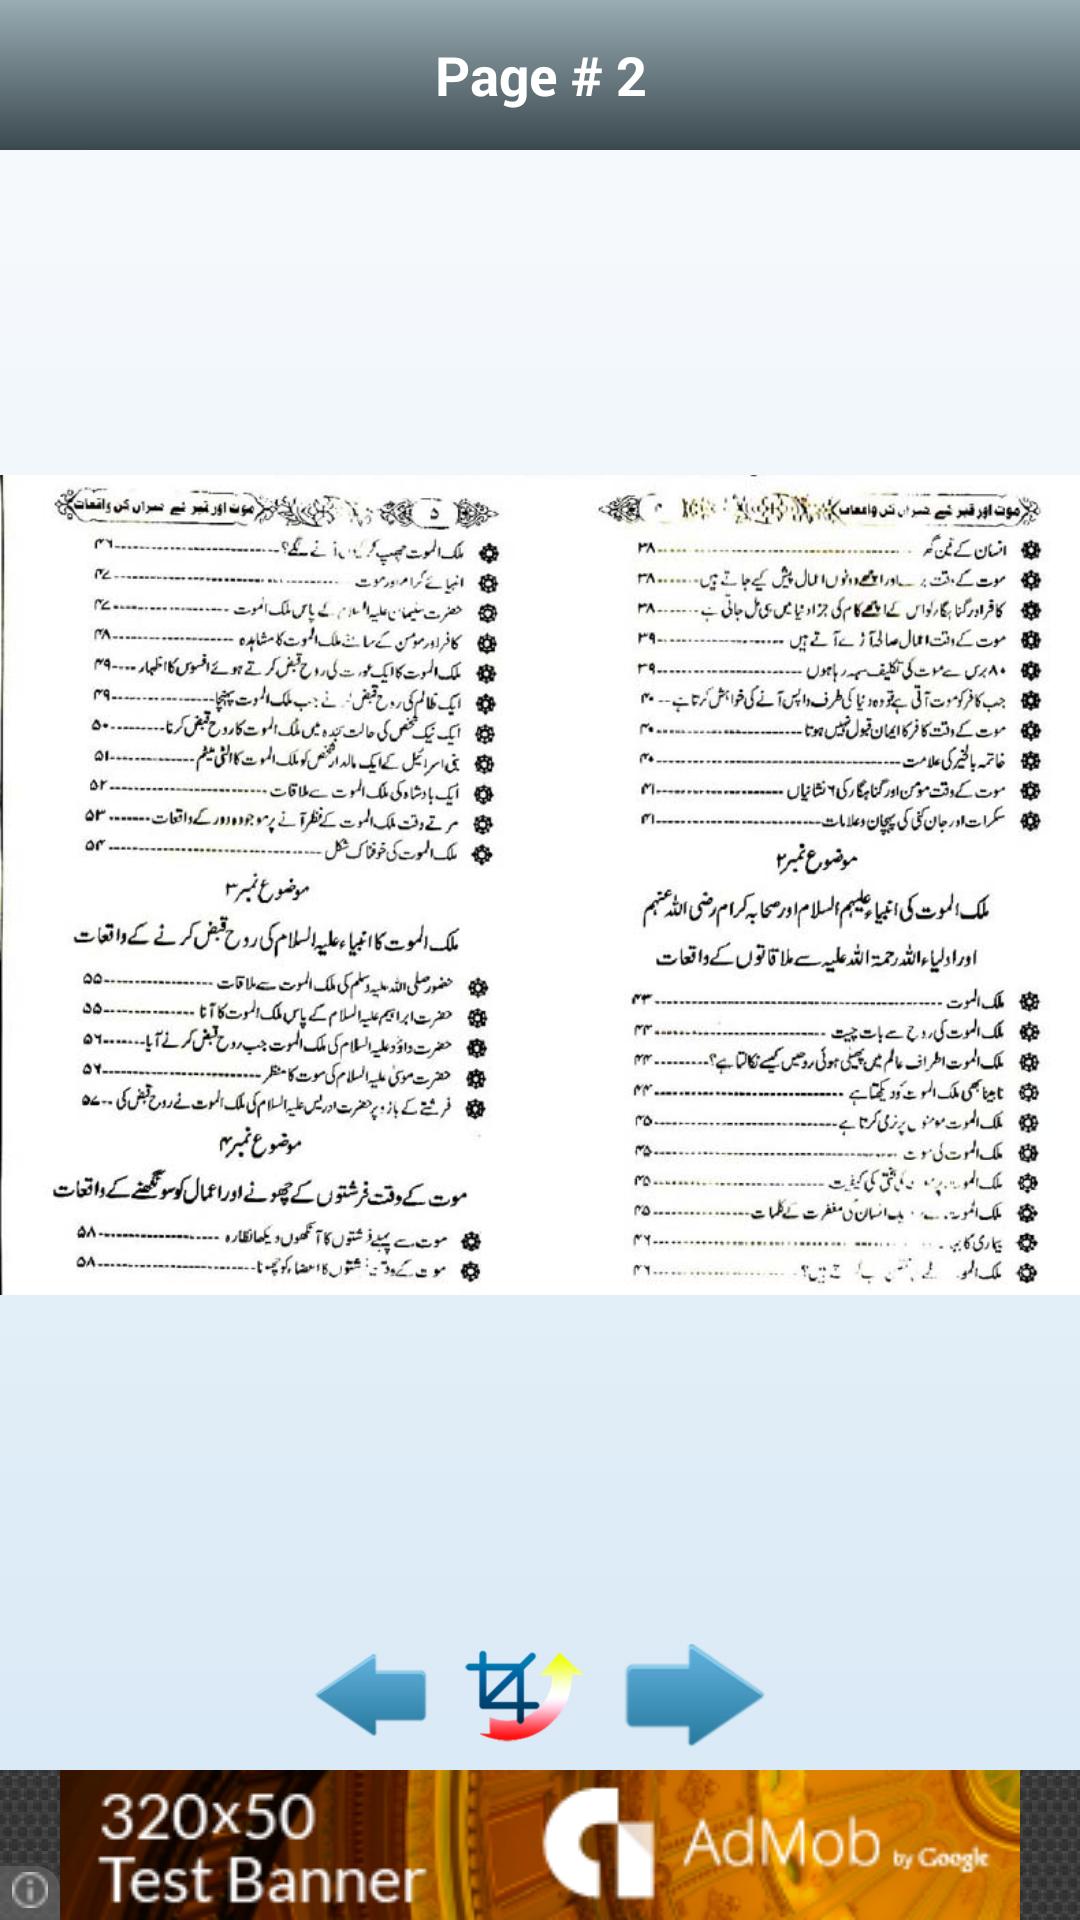 Page # 2
موت اور قبر کے واقعات
انسان کے تین گھر ۳۸
موت کے وقت اور اچھے دونوں اعمال پیش کیے جاتے ہیں ۳۸
کافر اور گناہگار کو اس کے اچھے کام کی جزا دنیا میں ہی مل جاتی ہے ۳۸
موت کے وقت اعمال صالحہ آڑے آتے ہیں ۳۹
۸۰ برس سے موت کی تکلیف سہہ رہا ہوں ۳۹
جب کافر کو موت آتی ہے تو وہ دنیا کی طرف واپس آنے کی خواہش کرتا ہے ۴۰
موت کے وقت کافر کا ایمان قبول نہیں ہوتا ۴۰
خاتمہ بالخیر کی علامت ۴۰
موت کے وقت مومن اور گناہگار کی ۶ نشانیاں ۴۱
سکرات اور جان کنی کی پہچان و علامات ۴۱
موضوع نمبر ۲
ملک الموت کی انبیاء علیہم السلام اور صحابہ کرام رضی اللہ عنہم
اور اولیاء اللہ رحمۃ اللہ علیہ سے ملاقاتوں کے واقعات
ملک الموت ۴۳
ملک الموت کی روح سے بات چیت ۴۴
ملک الموت اطراف عالم میں پھیلی ہوئی روحیں کیسے نکالتا ہے؟ ۴۴
نابینا بھی ملک الموت کو دیکھتا ہے ۴۴
ملک الموت مومنوں پر نرمی کرتا ہے ۴۵
ملک الموت کی موت ۴۵
ملک الموت پر کی سختی کی کیفیت ۴۵
ملک الموت انسان کی مغفرت کے کلمات ۴۵
بیماری کا ۴۶
ملک ہیں؟ ۴۶
موت اور قبر کے واقعات ۵
ملک الموت چھپ کر آنے لگے؟ ۴۶
انبیائے کرام اور موت ۴۷
حضرت سلیمان علیہ السلام کے پاس ملک الموت ۴۷
کافر اور مومن کے سامنے ملک الموت کا مشاہدہ ۴۸
ملک الموت کا ایک عورت کی روح قبض کرتے ہوئے افسوس کا اظہار ۴۹
ایک ظالم کی روح قبض کرنے جب ملک الموت پہنچا ۴۹
ایک نیک شخص کی حالت سجدہ میں ملک الموت کا روح قبض کرنا ۵۰
بنی اسرائیل کے ایک مالدار شخص کو ملک الموت کا الٹی میٹم ۵۱
ایک بادشاہ کی ملک الموت سے ملاقات ۵۲
مرتے وقت ملک الموت کے نظر آنے پر موجودہ دور کے واقعات ۵۳
ملک الموت کی خوفناک شکل ۵۴
موضوع نمبر ۳
ملک الموت کا انبیاء علیہ السلام کی روح قبض کرنے کے واقعات
حضور صلی اللہ علیہ وسلم کی ملک الموت سے ملاقات ۵۵
حضرت ابراہیم علیہ السلام کے پاس ملک الموت کا آنا ۵۵
حضرت داؤد علیہ السلام کی ملک الموت جب روح قبض کرنے آیا ۵۶
حضرت موسیٰ علیہ السلام کی موت کا منظر ۵۶
فرشتے کے بازو پر حضرت ادریس علیہ السلام کی ملک الموت نے روح قبض کی ۵۷
موضوع نمبر ۴
موت کے وقت فرشتوں کے چھونے اور اعمال کو سونگھنے کے واقعات
موت سے پہلے فرشتوں کا آنکھوں دیکھا نظارہ ۵۸
موت کے وقت فرشتوں کا اعضاء کو چھونا ۵۸
320x50
Test Banner
AdMob by Google